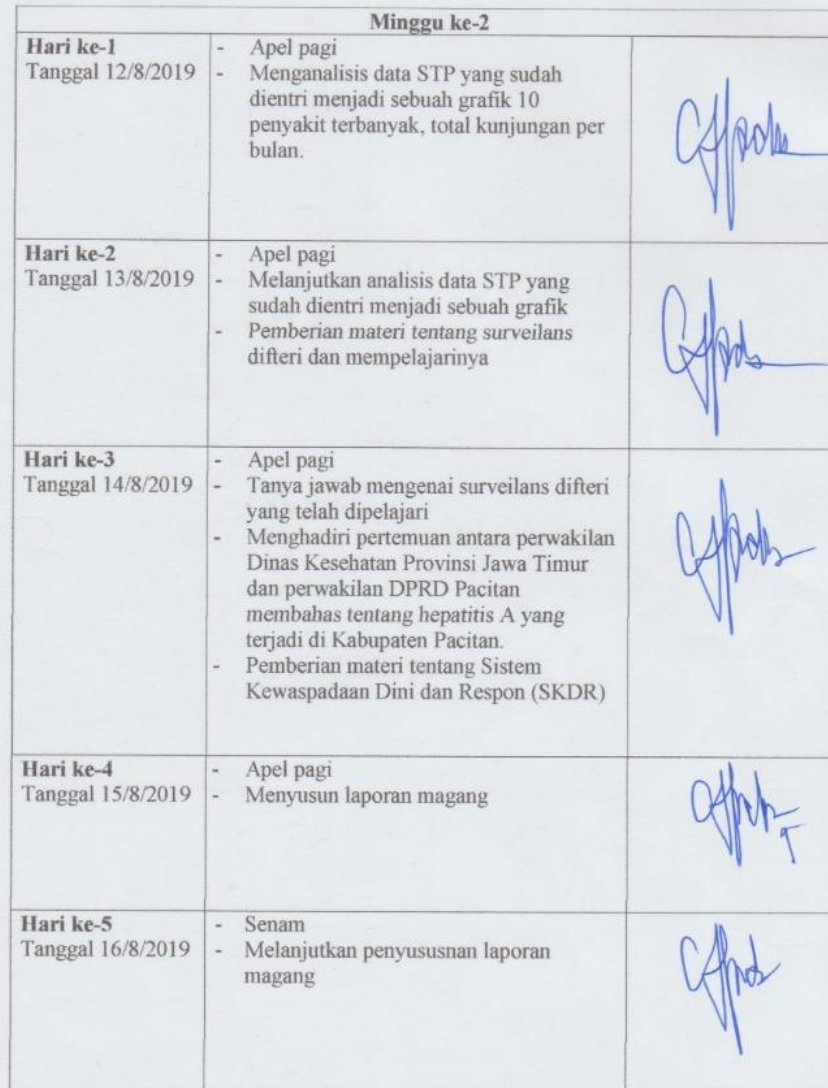 Minggu ke-2
Hari ke-1
Tanggal 12/8/2019
- Apel pagi
- Menganalisis data STP yang sudah
dientri menjadi sebuah grafik 10
penyakit terbanyak, total kunjungan per
bulan.
Hari ke-2
Tanggal 13/8/2019
- Apel pagi
- Melanjutkan analisis data STP yang
sudah dientri menjadi sebuah grafik
- Pemberian materi tentang surveilans
difteri dan mempelajarinya
Hari ke-3
Tanggal 14/8/2019
- Apel pagi
- Tanya jawab mengenai surveilans difteri
yang telah dipelajari
- Menghadiri pertemuan antara perwakilan
Dinas Kesehatan Provinsi Jawa Timur
dan perwakilan DPRD Pacitan
membahas tentang hepatitis A yang
terjadi di Kabupaten Pacitan.
- Pemberian materi tentang Sistem
Kewaspadaan Dini dan Respon (SKDR)
Hari ke-4
Tanggal 15/8/2019
- Apel pagi
- Menyusun laporan magang
Hari ke-5
Tanggal 16/8/2019
- Senam
- Melanjutkan penyususnan laporan
magang